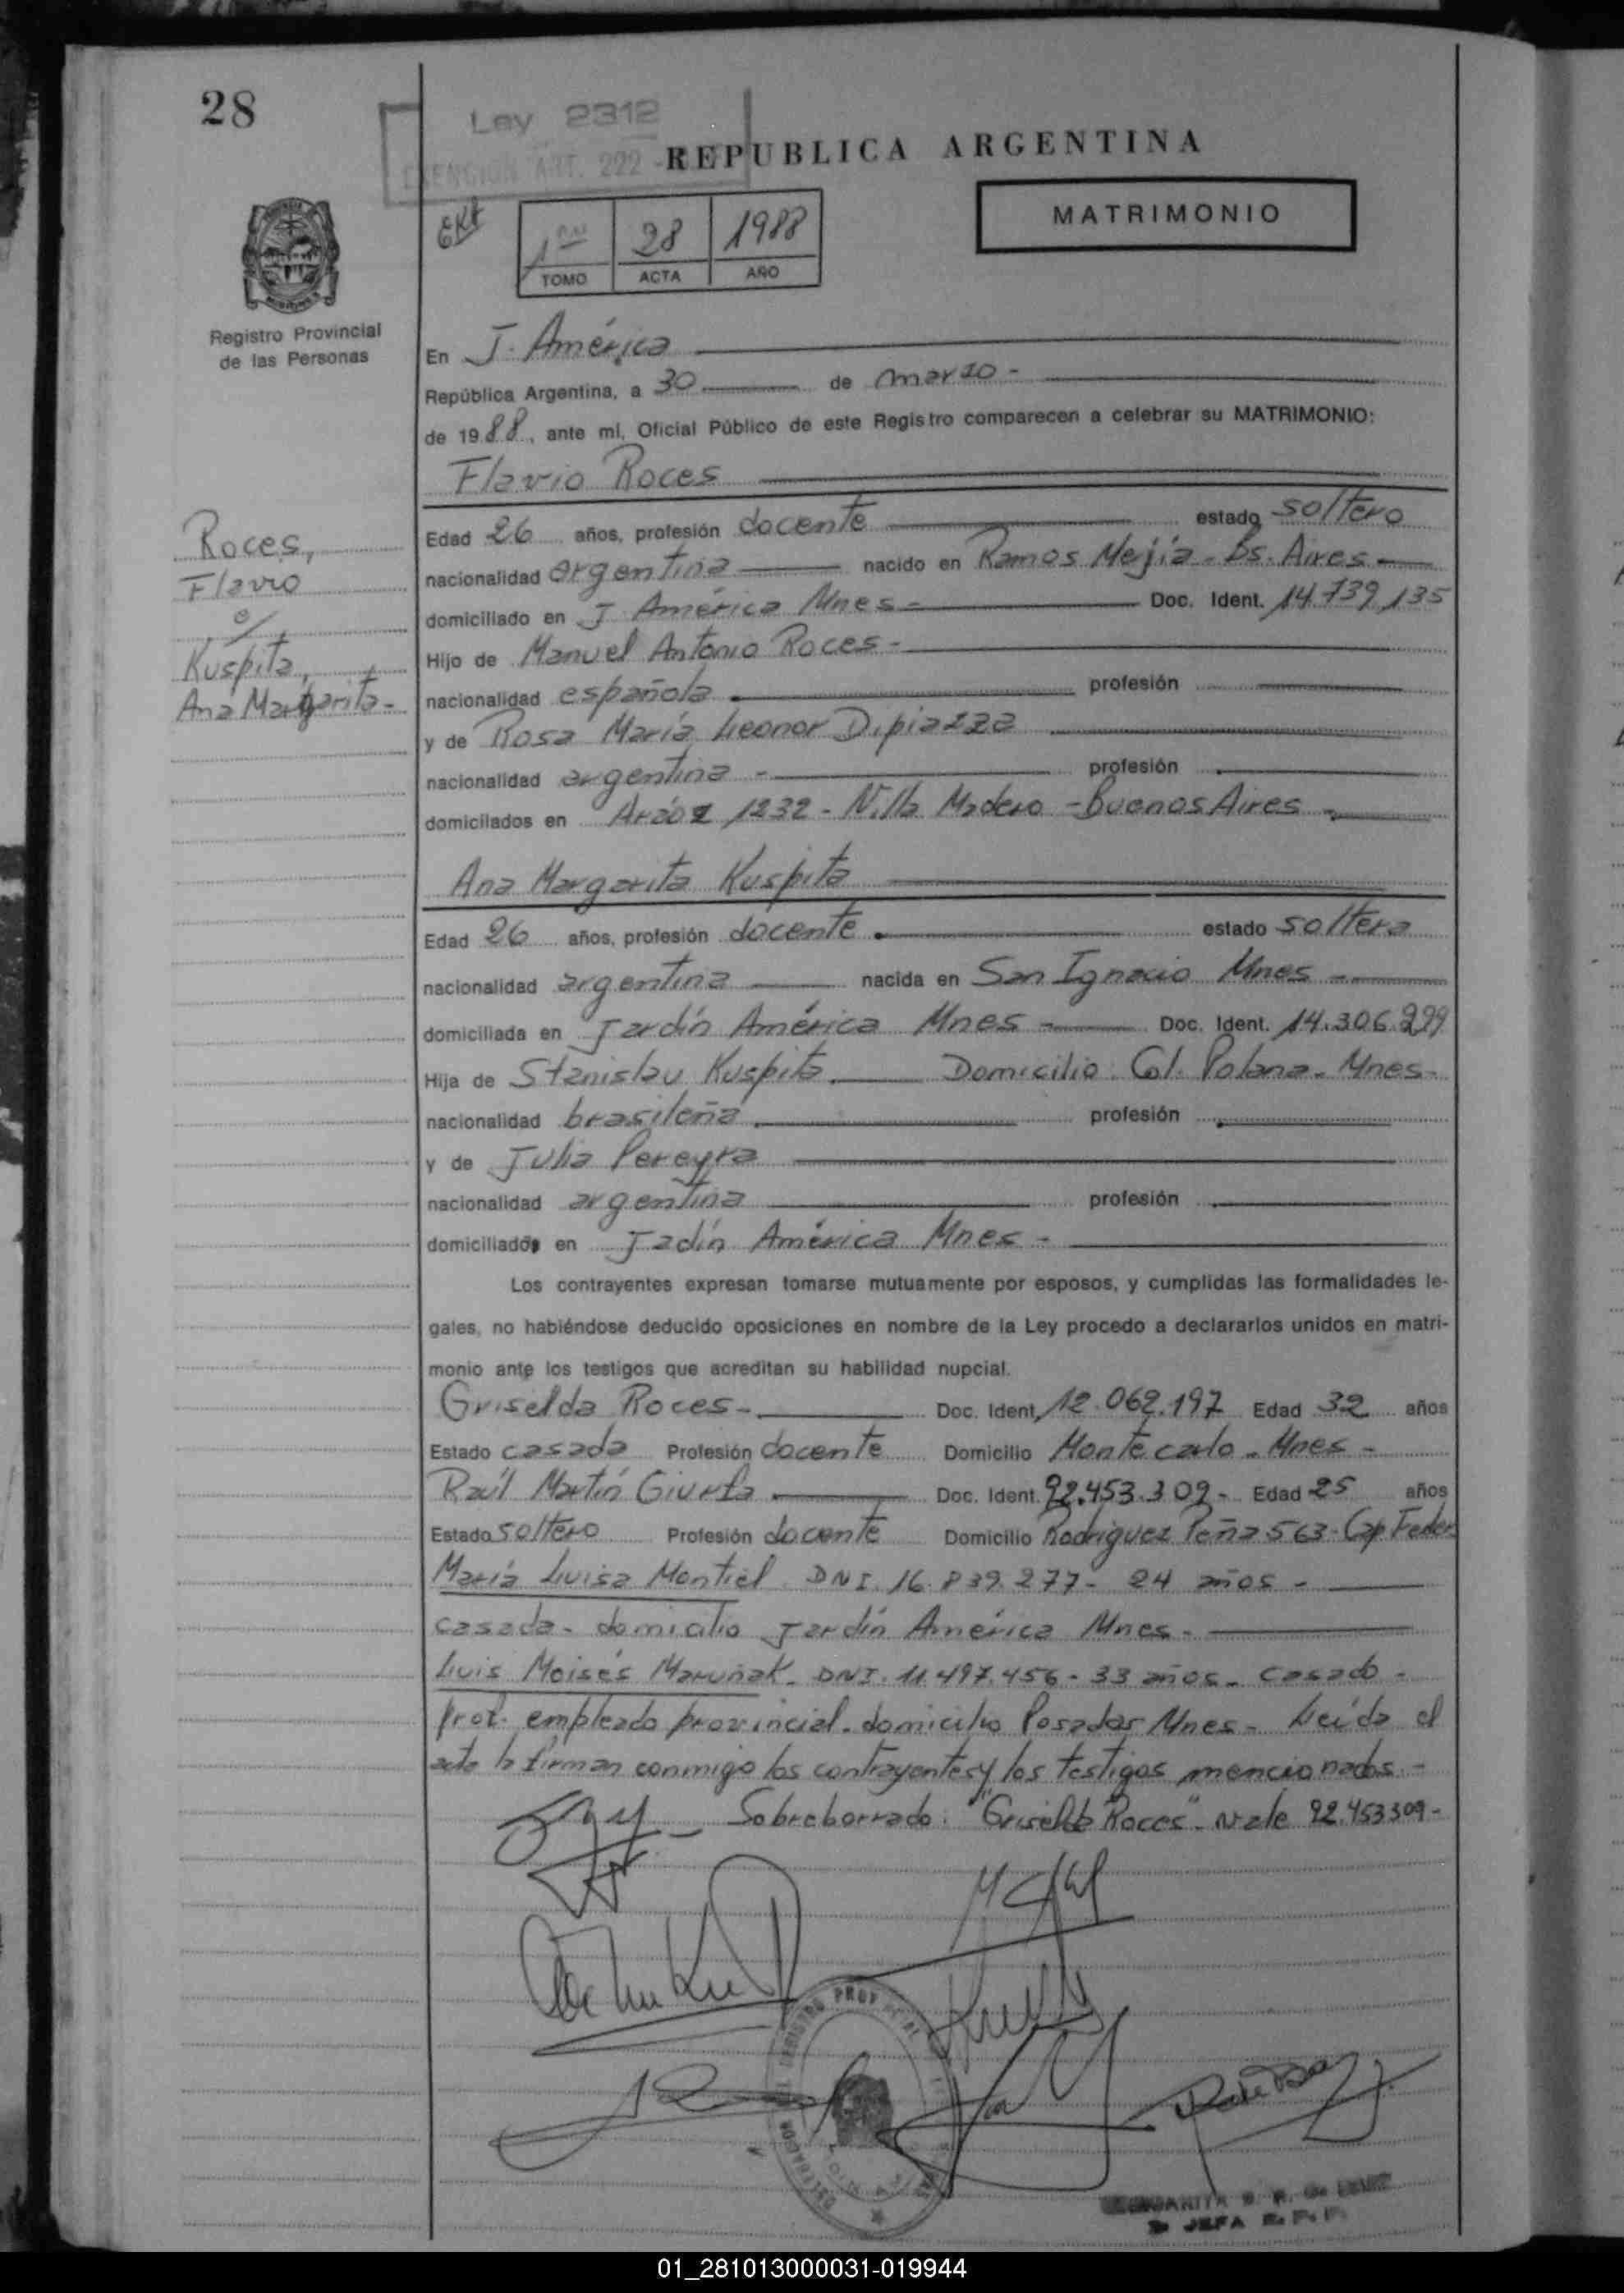 28
Ley 2312
EXENCION ART. 222
REPUBLICA ARGENTINA
MATRIMONIO
1ro 28 1988
TOMO ACTA AÑO
Registro Provincial
de las Personas
En J. América
República Argentina, a 30 de marzo -
de 1988, ante mi, Oficial Público de este Registro comparecen a celebrar su MATRIMONIO:
Flavio Roces
Roces,
Flavio
c/
Kuspita,
Ana Margarita-
Edad 26 años, profesión docente estado soltero
nacionalidad argentina nacido en Ramos Mejía - Bs. Aires -
domiciliado en J América Mnes - Doc. Ident. 14.739.135
Hijo de Manuel Antonio Roces -
nacionalidad española profesión
y de Rosa María Leonor Dipiazza
nacionalidad argentina - profesión
domicilados en Aráoz 1232 - Villa Madero - Buenos Aires -
Ana Margarita Kuspita
Edad 26 años, profesión docente estado soltera
nacionalidad argentina nacida en San Ignacio Mnes -
domiciliada en Jardín América Mnes - Doc. Ident. 14.306.299
Hija de Stanislau Kuspita Domicilio Col. Polana - Mnes -
nacionalidad brasileña profesión
y de Julia Pereyra
nacionalidad argentina profesión
domiciliados en Jadín América Mnes -
Los contrayentes expresan tomarse mutuamente por esposos, y cumplidas las formalidades le-
gales, no habiéndose deducido oposiciones en nombre de la Ley procedo a declararlos unidos en matri-
monio ante los testigos que acreditan su habilidad nupcial.
Griselda Roces - Doc. Ident. 12.062.197 Edad 32 años
Estado casada Profesión docente Domicilio Montecarlo - Mnes -
Raúl Martín Giunta Doc. Ident. 92.453.309 - Edad 25 años
Estado soltero Profesión docente Domicilio Rodriguez Peña 563 - Cap. Feder
María Luisa Montiel DNI. 16.839.277 - 24 años -
casada - domicilio Jardín América Mnes -
Luis Moisés Maruñak - DNI. 11.497.456 - 33 años - casado -
prof. empleado provincial - domicilio Posadas Mnes - Leída el
acta la firman conmigo los contrayentes y los testigos mencionados -
Sobreborrado: "Griselda Roces" - vale 92.453309 -
JEFA
01_281013000031-019944